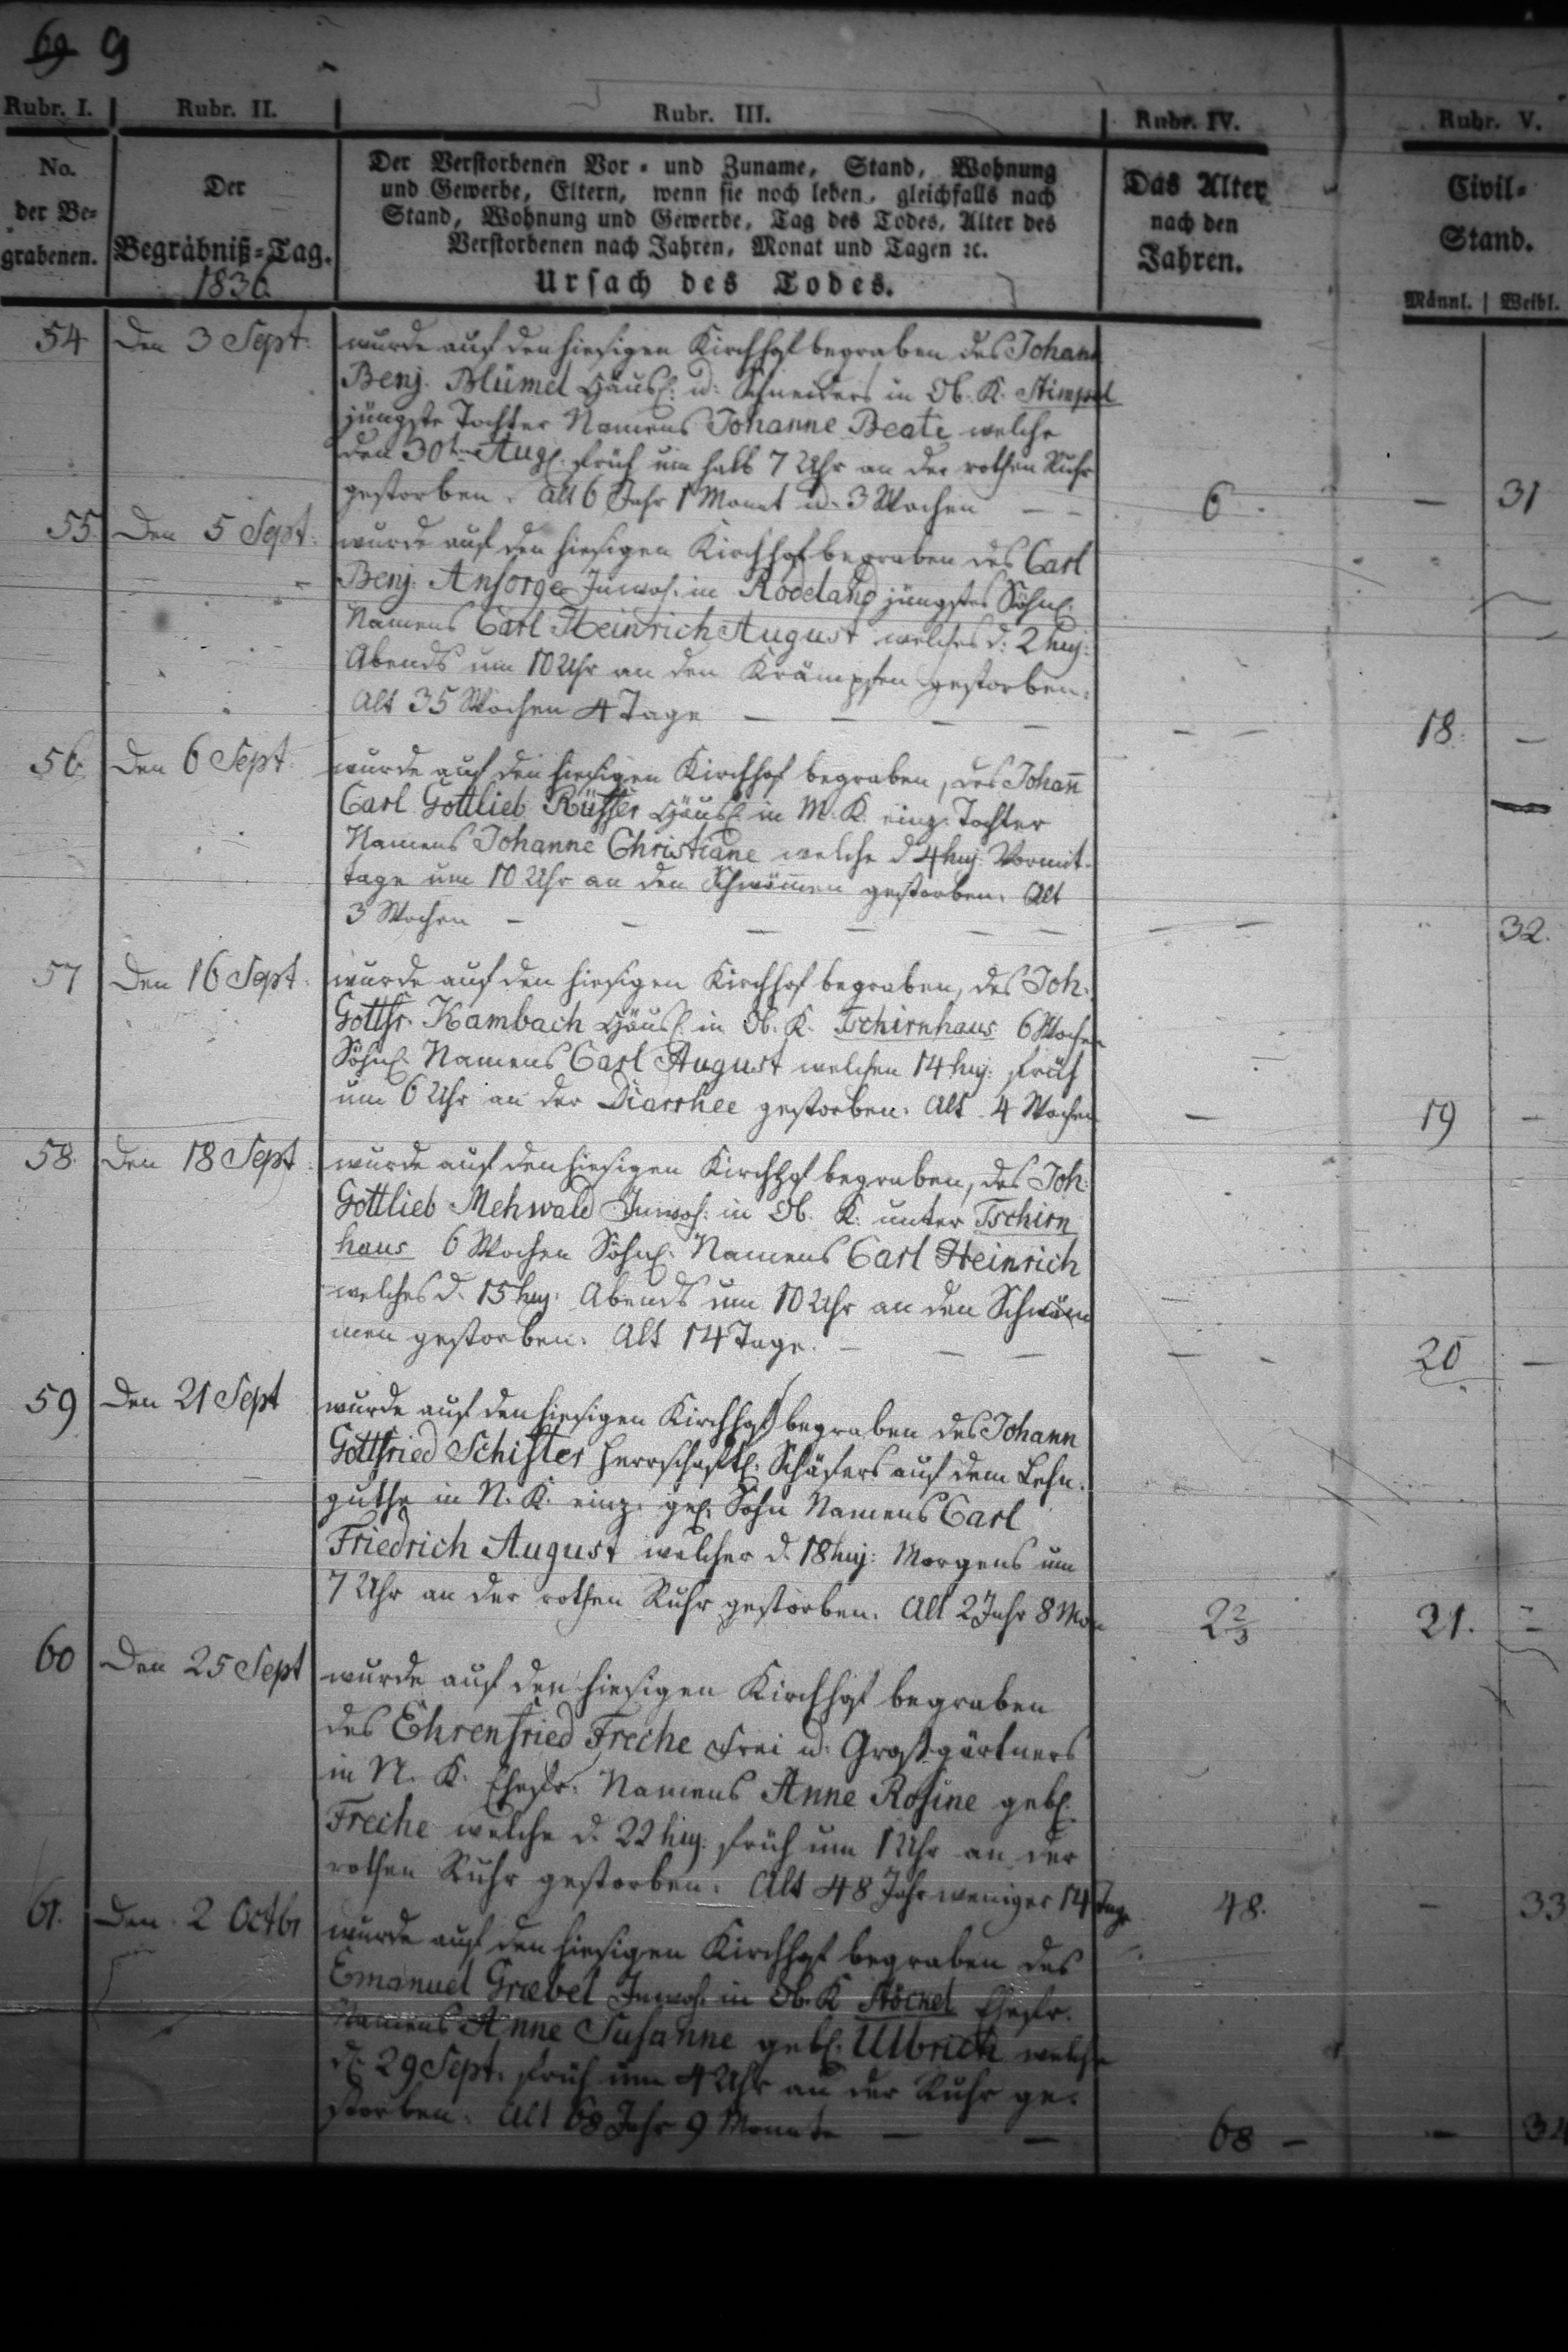 69 9
Rubr. I. Rubr. II. Rubr. III. Rubr. IV. Rubr. V.
No. der Be-grabenen.
Der Begräbniß-Tag. 1836.
Der Verstorbenen Vor- und Zuname, Stand, Wohnung
und Gewerbe, Eltern, wenn sie noch leben, gleichfalls nach
Stand, Wohnung und Gewerbe, Tag des Todes, Alter des
Verstorbenen nach Jahren, Monat und Tagen ꝛc.
Ursach des Todes.
Das Alter nach den Jahren.
Civil-Stand.
Männl. | Weibl.
54 Den 3 Sept: wurde auf den hiesigen Kirchhof begraben des Johann
Benj. Blümel Häusl: u: Schneiders in Ob. K. Stimpel
jüngste Tochter Namens Johanne Beate welche
den 30t Aug. früh um halb 7 Uhr an der rothen Ruhr
gestorben. Alt 6 Jahr 1 Monat u. 3 Wochen — — 6. — 31
55. Den 5 Sept: wurde auf den hiesigen Kirchhof begraben des Carl
Benj. Ansorge Inwoh: in Rodeland jüngstes Söhnl.
Namens Carl Heinrich August welches d: 2 huj:
Abends um 10 Uhr an den Krämpfen gestorben.
Alt 35 Wochen 4 Tage — — — — — — 18. —
56. Den 6 Sept: wurde auf den hiesigen Kirchhof begraben, des Johañ
Carl Gottlieb Häusl: in M. K. einz: Tochter
Namens Johanne Christiane welche d 4 huj: Vormit-
tage um 10 Uhr an den Schwäm̃en gestorben. Alt
3 Wochen — — — — — — — 32.
57 Den 16 Sept: wurde auf den hiesigen Kirchhof begraben, des Joh.
Gottfr. Kambach Häusl: in Ob. K. Tschirnhaus 6 Wochen
Söhnl. Namens Carl August welchen 14 huj: früh
um 6 Uhr an der Diarrhee gestorben. Alt 4 Wochen — 19 —
58. Den 18 Sept: wurde auf den hiesigen Kirchhof begraben, des Joh:
Gottlieb Mehwald Inwoh: in Ob. K. unter Tschirn
haus 6 Wochen Söhnl. Namens Carl Heinrich
welches d. 15 huj: Abends um 10 Uhr an den Schwäm
men gestorben. Alt 14 Tage. — — — — — 20 —
59 Den 21 Sept wurde auf den hiesigen Kirchhof begraben des Johann
Gottfried Schifter herrschaftl: Schäfers auf dem Lehn-
guthe in N. K. einz. gel. Sohn Namens Carl
Friedrich August welcher d. 18 huj: Morgens um
7 Uhr an der rothen Ruhr gestorben. Alt 2 Jahr 8 Mon 2 2/3 21. —
60 Den 25 Sept wurde auf den hiesigen Kirchhof begraben
des Ehrenfried Freche Frei u: Großgärtners
in N. K. Ehefr: Namens Anne Rosine gebl.
Freche welche d. 22 huj. früh um 1 Uhr an der
rothen Ruhr gestorben. Alt 48 Jahr weniger 14 Tage 48. — 33
61. Den 2 Octbr wurde auf den hiesigen Kirchhof begraben des
Emanuel Græbel Inwoh: in Ob. K Stöckel Ehefr.
Namens Anne Susanne gebl. Ulbrich welche
d. 29 Sept. früh um 4 Uhr an der Ruhr ge-
storben. Alt 68 Jahr 9 Monate — — 68 — — 34